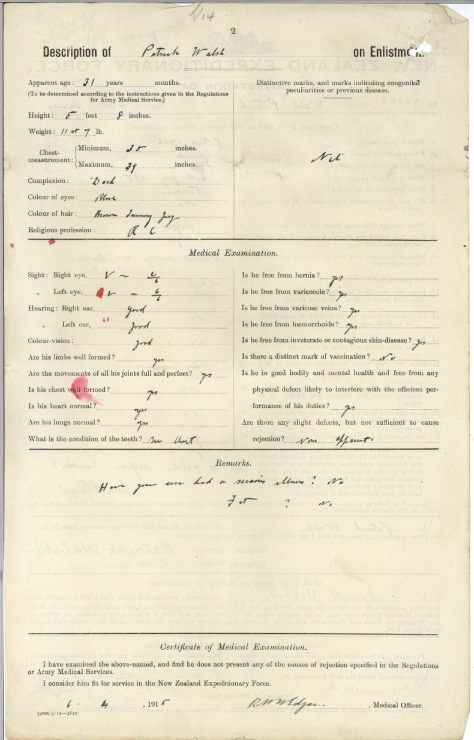 1/14
2
Description of Patrick Walsh on Enlistment
Apparent age: 31 years months.
(To be determined according to the instructions given in the Regulations
for Army Medical Service.)
Height: 5 feet 8 inches.
Weight: 11 st 7 lb.
Chest-measurement: Minimum, 35 inches.
Maximum, 39 inches.
Complexion: Dark
Colour of eyes: Blue
Colour of hair: Brown Turning Grey
Religious profession: R C
Distinctive marks, and marks indicating congenital
peculiarities or previous disease.
Nil
Medical Examination.
Sight: Right eye, V = 6/6
„ Left eye, V = 6/6
Hearing: Right ear, good
„ Left ear, good
Colour-vision: good
Are his limbs well formed? yes
Are the movements of all his joints full and perfect? yes
Is his chest well formed? yes
Is his heart normal? yes
Are his lungs normal? yes
What is the condition of the teeth?
Is he free from hernia? yes
Is he free from varicocele? yes
Is he free from varicose veins? yes
Is he free from hæmorrhoids? yes
Is he free from inveterate or contagious skin-disease? yes
Is there a distinct mark of vaccination? No
Is he in good bodily and mental health and free from any
physical defect likely to interfere with the efficient per-
formance of his duties? yes
Are there any slight defects, but not sufficient to cause
rejection? None apparent
Remarks.
Have you ever had a serious illness? No
Fit ? No
Certificate of Medical Examination.
I have examined the above-named, and find he does not present any of the causes of rejection specified in the Regulations
or Army Medical Services.
I consider him fit for service in the New Zealand Expeditionary Force.
6 . 4 , 1915 , Medical Officer.